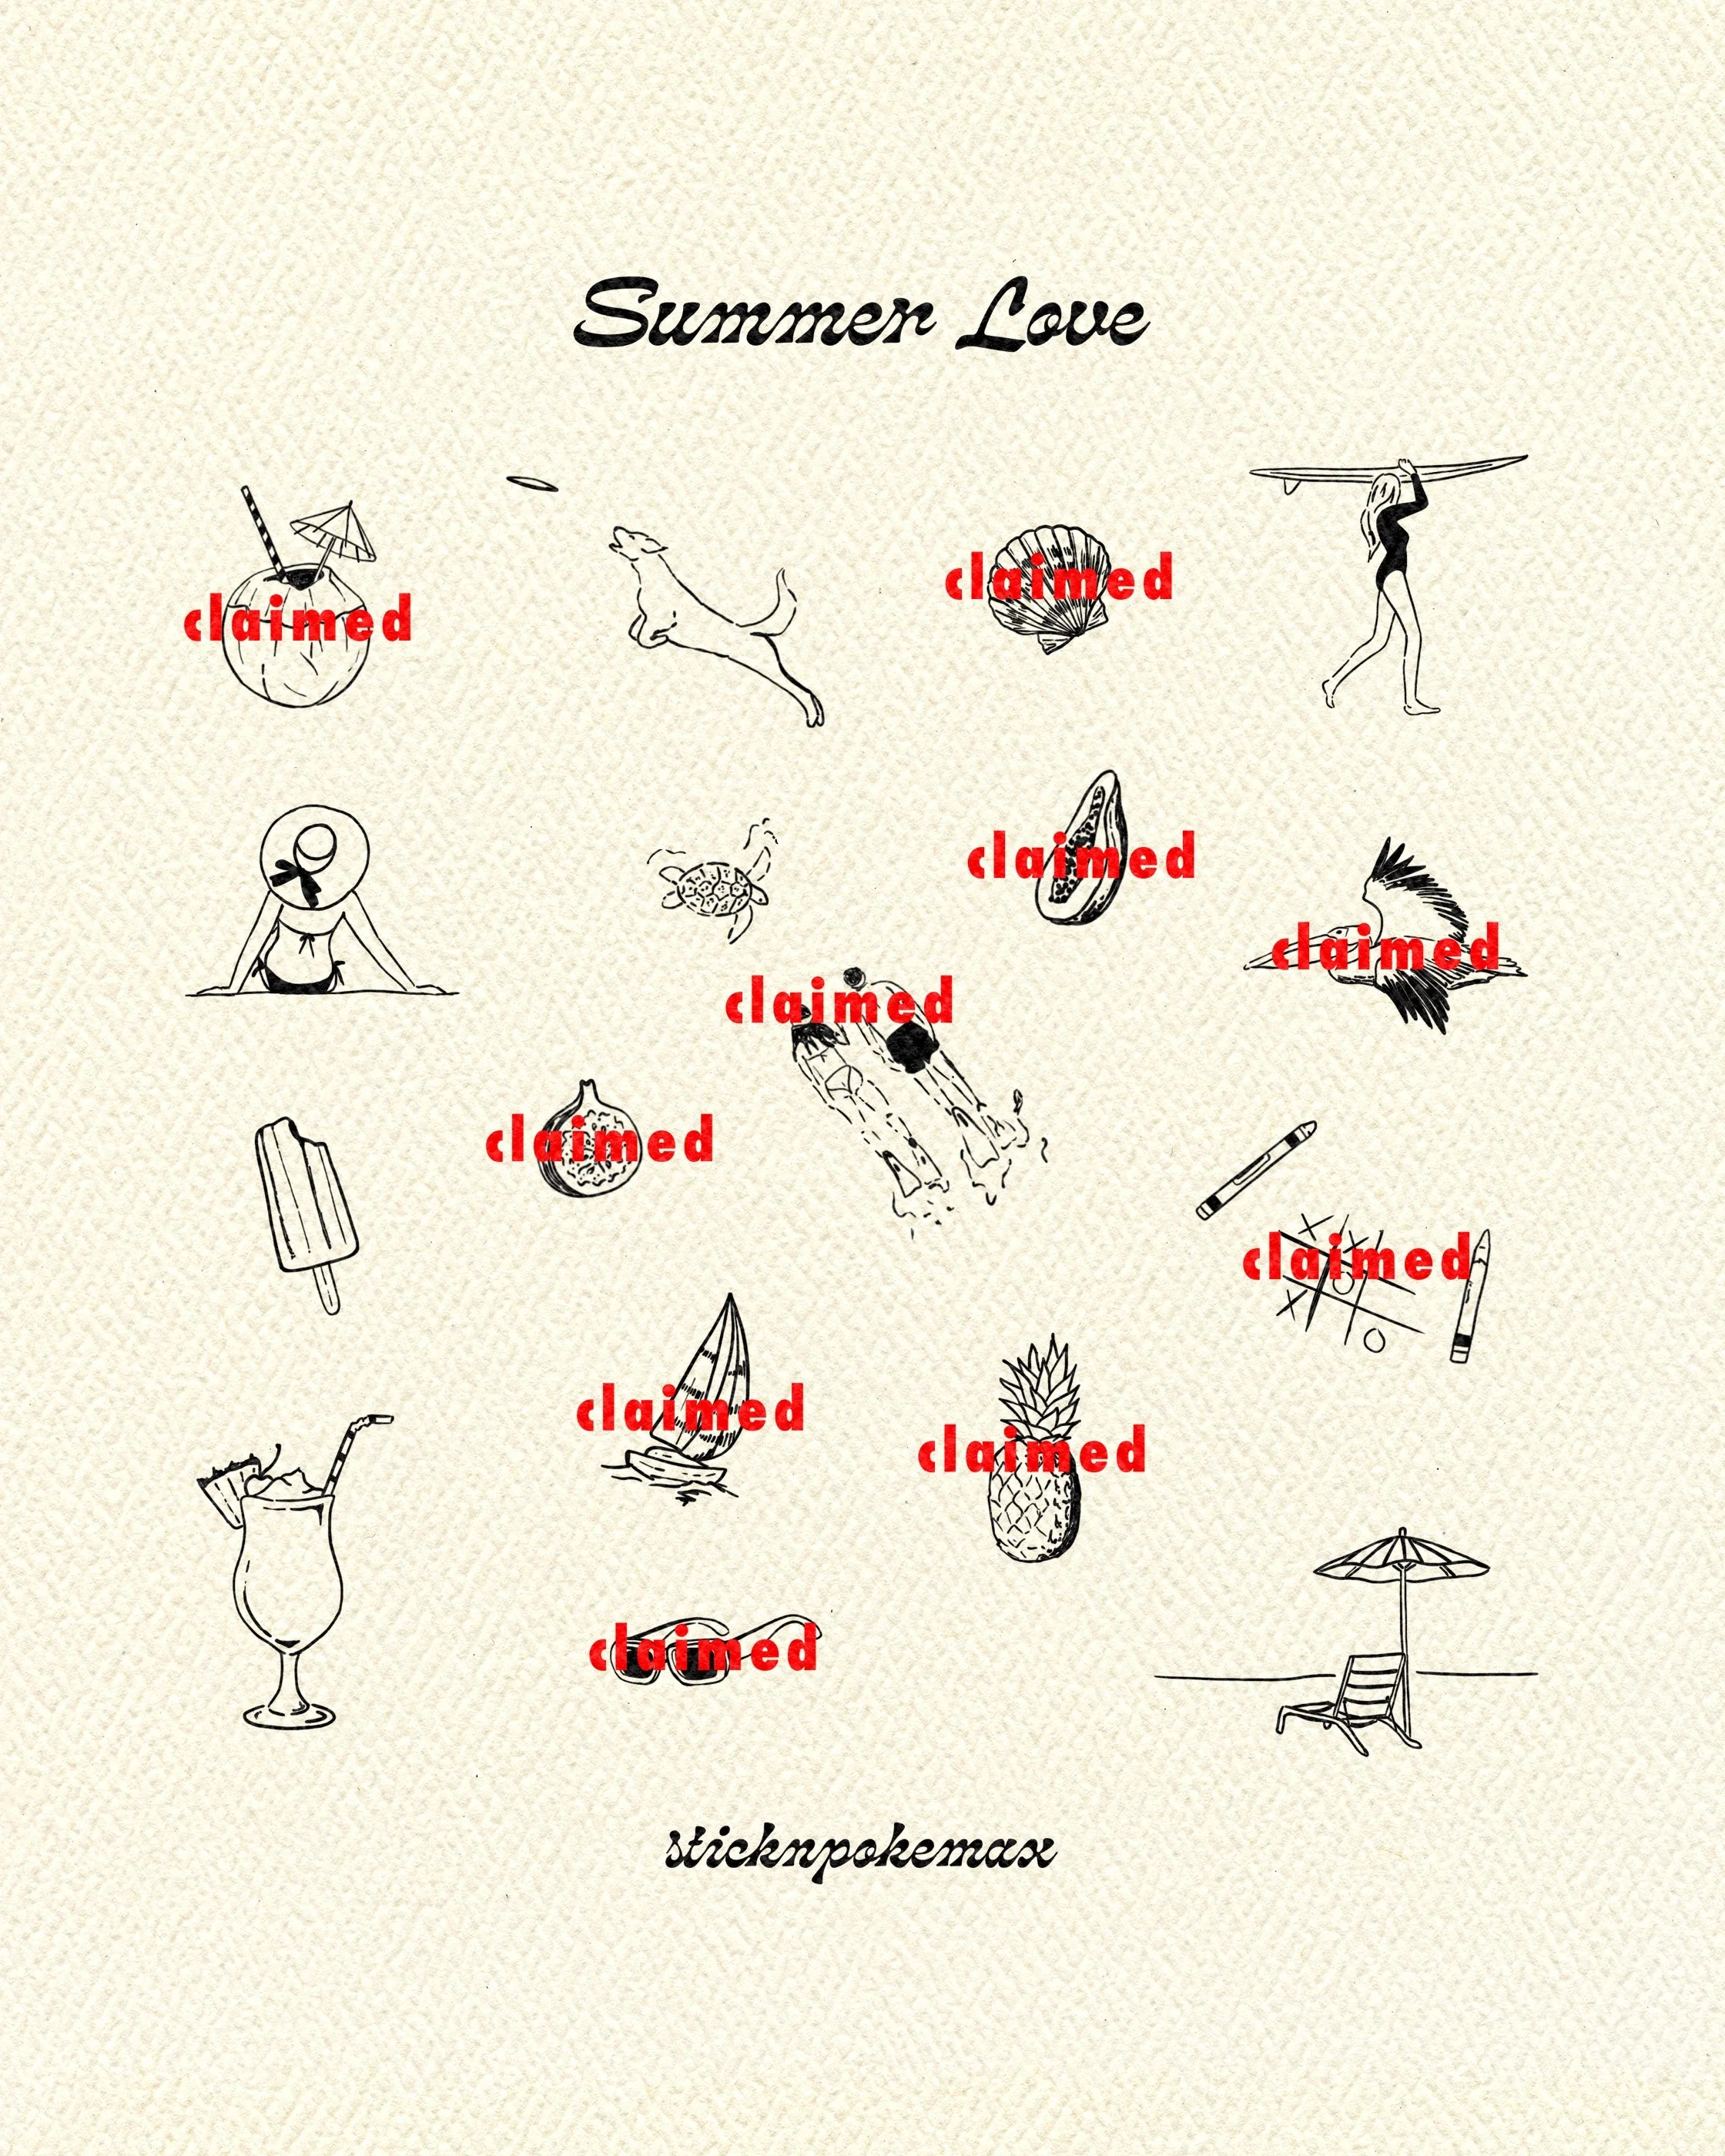 Summer Love
claimed
claimed
claimed
claimed
claimed
claimed
claimed
claimed
claimed
claimed
sticknpokemax